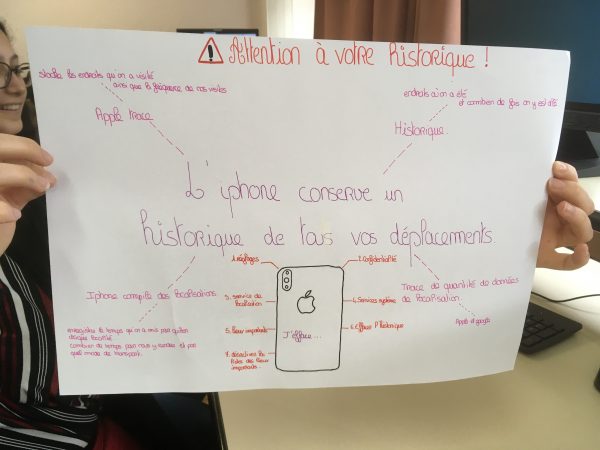 Attention à votre historique !
stocke les endroits qu'on a visité
ainsi que la fréquence de nos visites
Apple trace
endroits où on a été
et combien de fois on y est allé
Historique.
L'iphone conserve un
historique de tous vos déplacements.
1. réglages
2. Confidentialité
3. service de localisation
4. Services système
5. lieux importants
6. Effacer l'historique
7. désactivez la
des lieux
importants.
J'efface...
Iphone compile des localisations
enregistre le temps qu'on a mis pour
combien de temps pour nous y rendre et par
quel mode de transport.
Trace de quantité de données
de localisation.
Apple et google